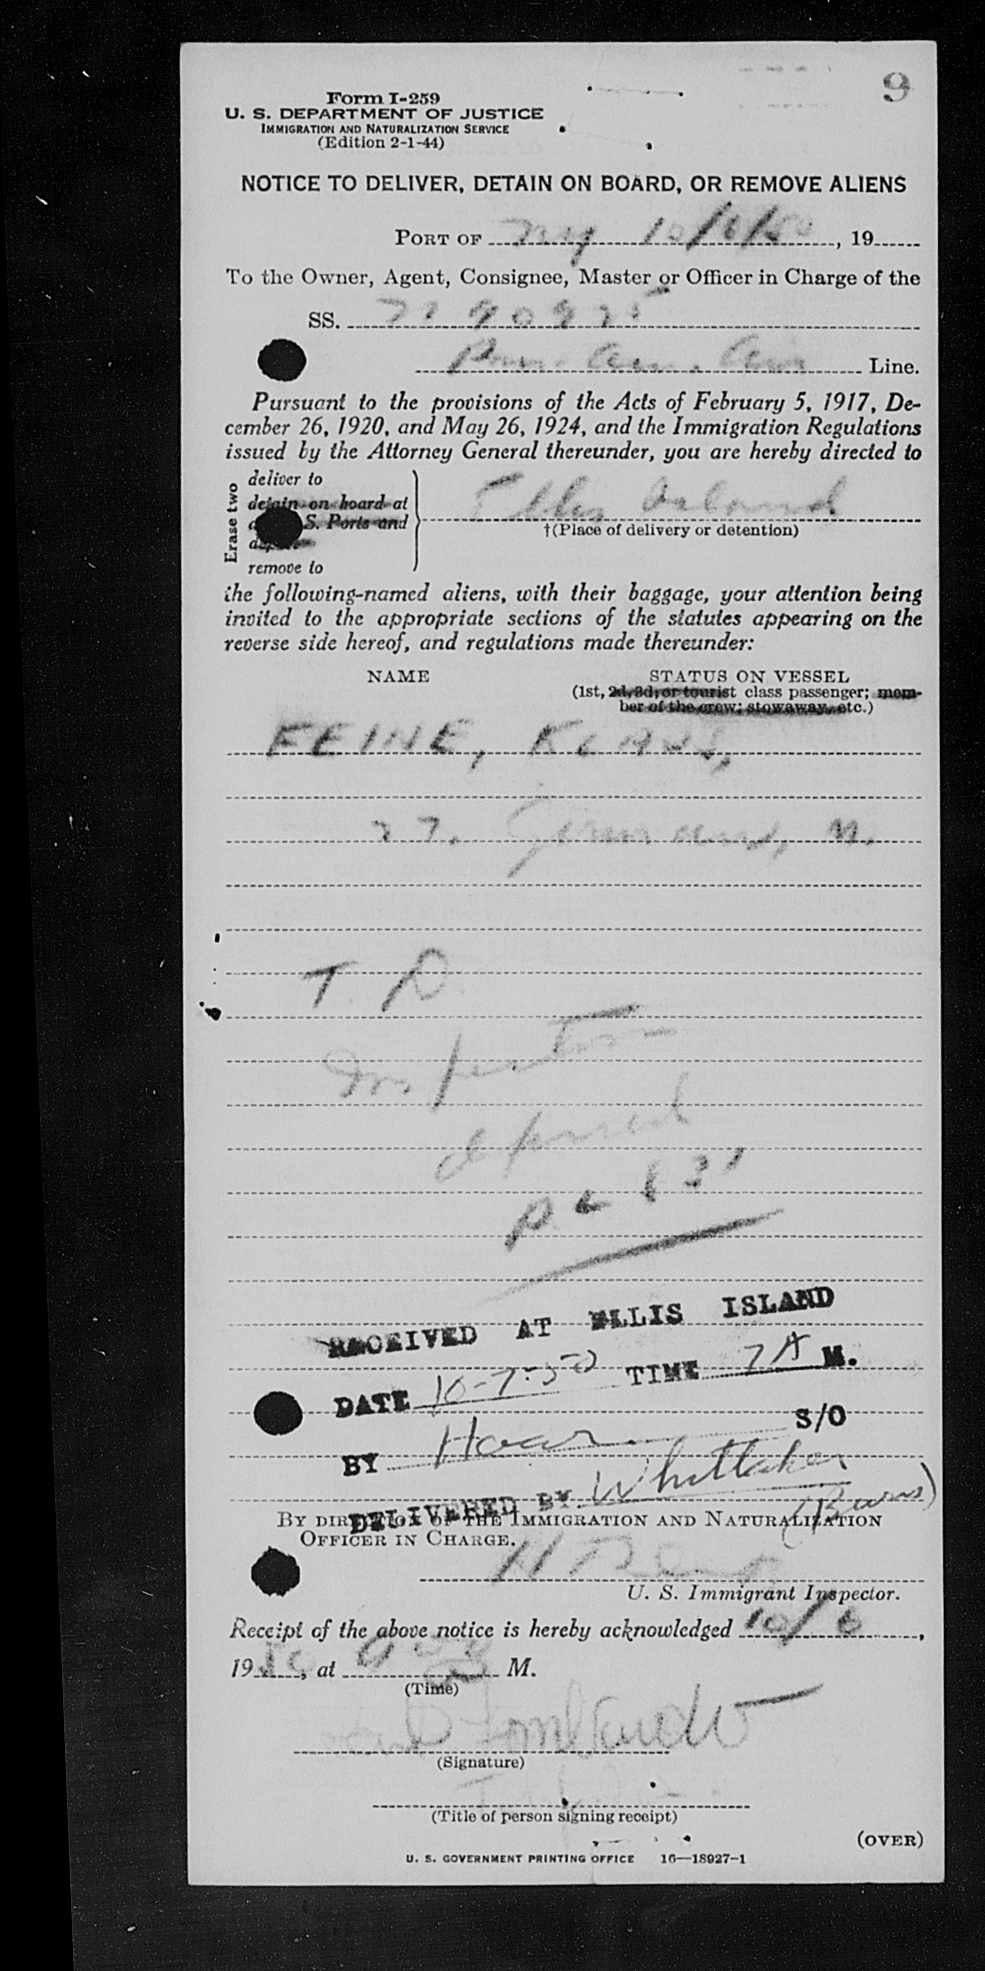 9
Form I-259
U. S. DEPARTMENT OF JUSTICE
IMMIGRATION AND NATURALIZATION SERVICE
(Edition 2-1-44)
NOTICE TO DELIVER, DETAIN ON BOARD, OR REMOVE ALIENS
PORT OF 10/6/50, 19
To the Owner, Agent, Consignee, Master or Officer in Charge of the
SS.
Pan. Am. Air Line.
Pursuant to the provisions of the Acts of February 5, 1917, De-
cember 26, 1920, and May 26, 1924, and the Immigration Regulations
issued by the Attorney General thereunder, you are hereby directed to
Erase two
deliver to
detain on board at
S. Ports and
remove to
Ellis Island
†(Place of delivery or detention)
the following-named aliens, with their baggage, your attention being
invited to the appropriate sections of the statutes appearing on the
reverse side hereof, and regulations made thereunder:
NAME STATUS ON VESSEL
(1st, 2d, 3d, or tourist class passenger; mem-
ber of the crew; stowaway, etc.)
FEINE, KLAUS,
27. German, M.
T. D.
RECEIVED AT ELLIS ISLAND
DATE 10-7-50 TIME 7 A M.
BY Hoar S/O
DELIVERED BY Whittaker
(Burns)
BY DIRECTION OF THE IMMIGRATION AND NATURALIZATION
OFFICER IN CHARGE.
U. S. Immigrant Inspector.
Receipt of the above notice is hereby acknowledged 10/6,
1950, at M.
(Time)
(Signature)
(Title of person signing receipt)
(OVER)
U. S. GOVERNMENT PRINTING OFFICE 16—18927-1